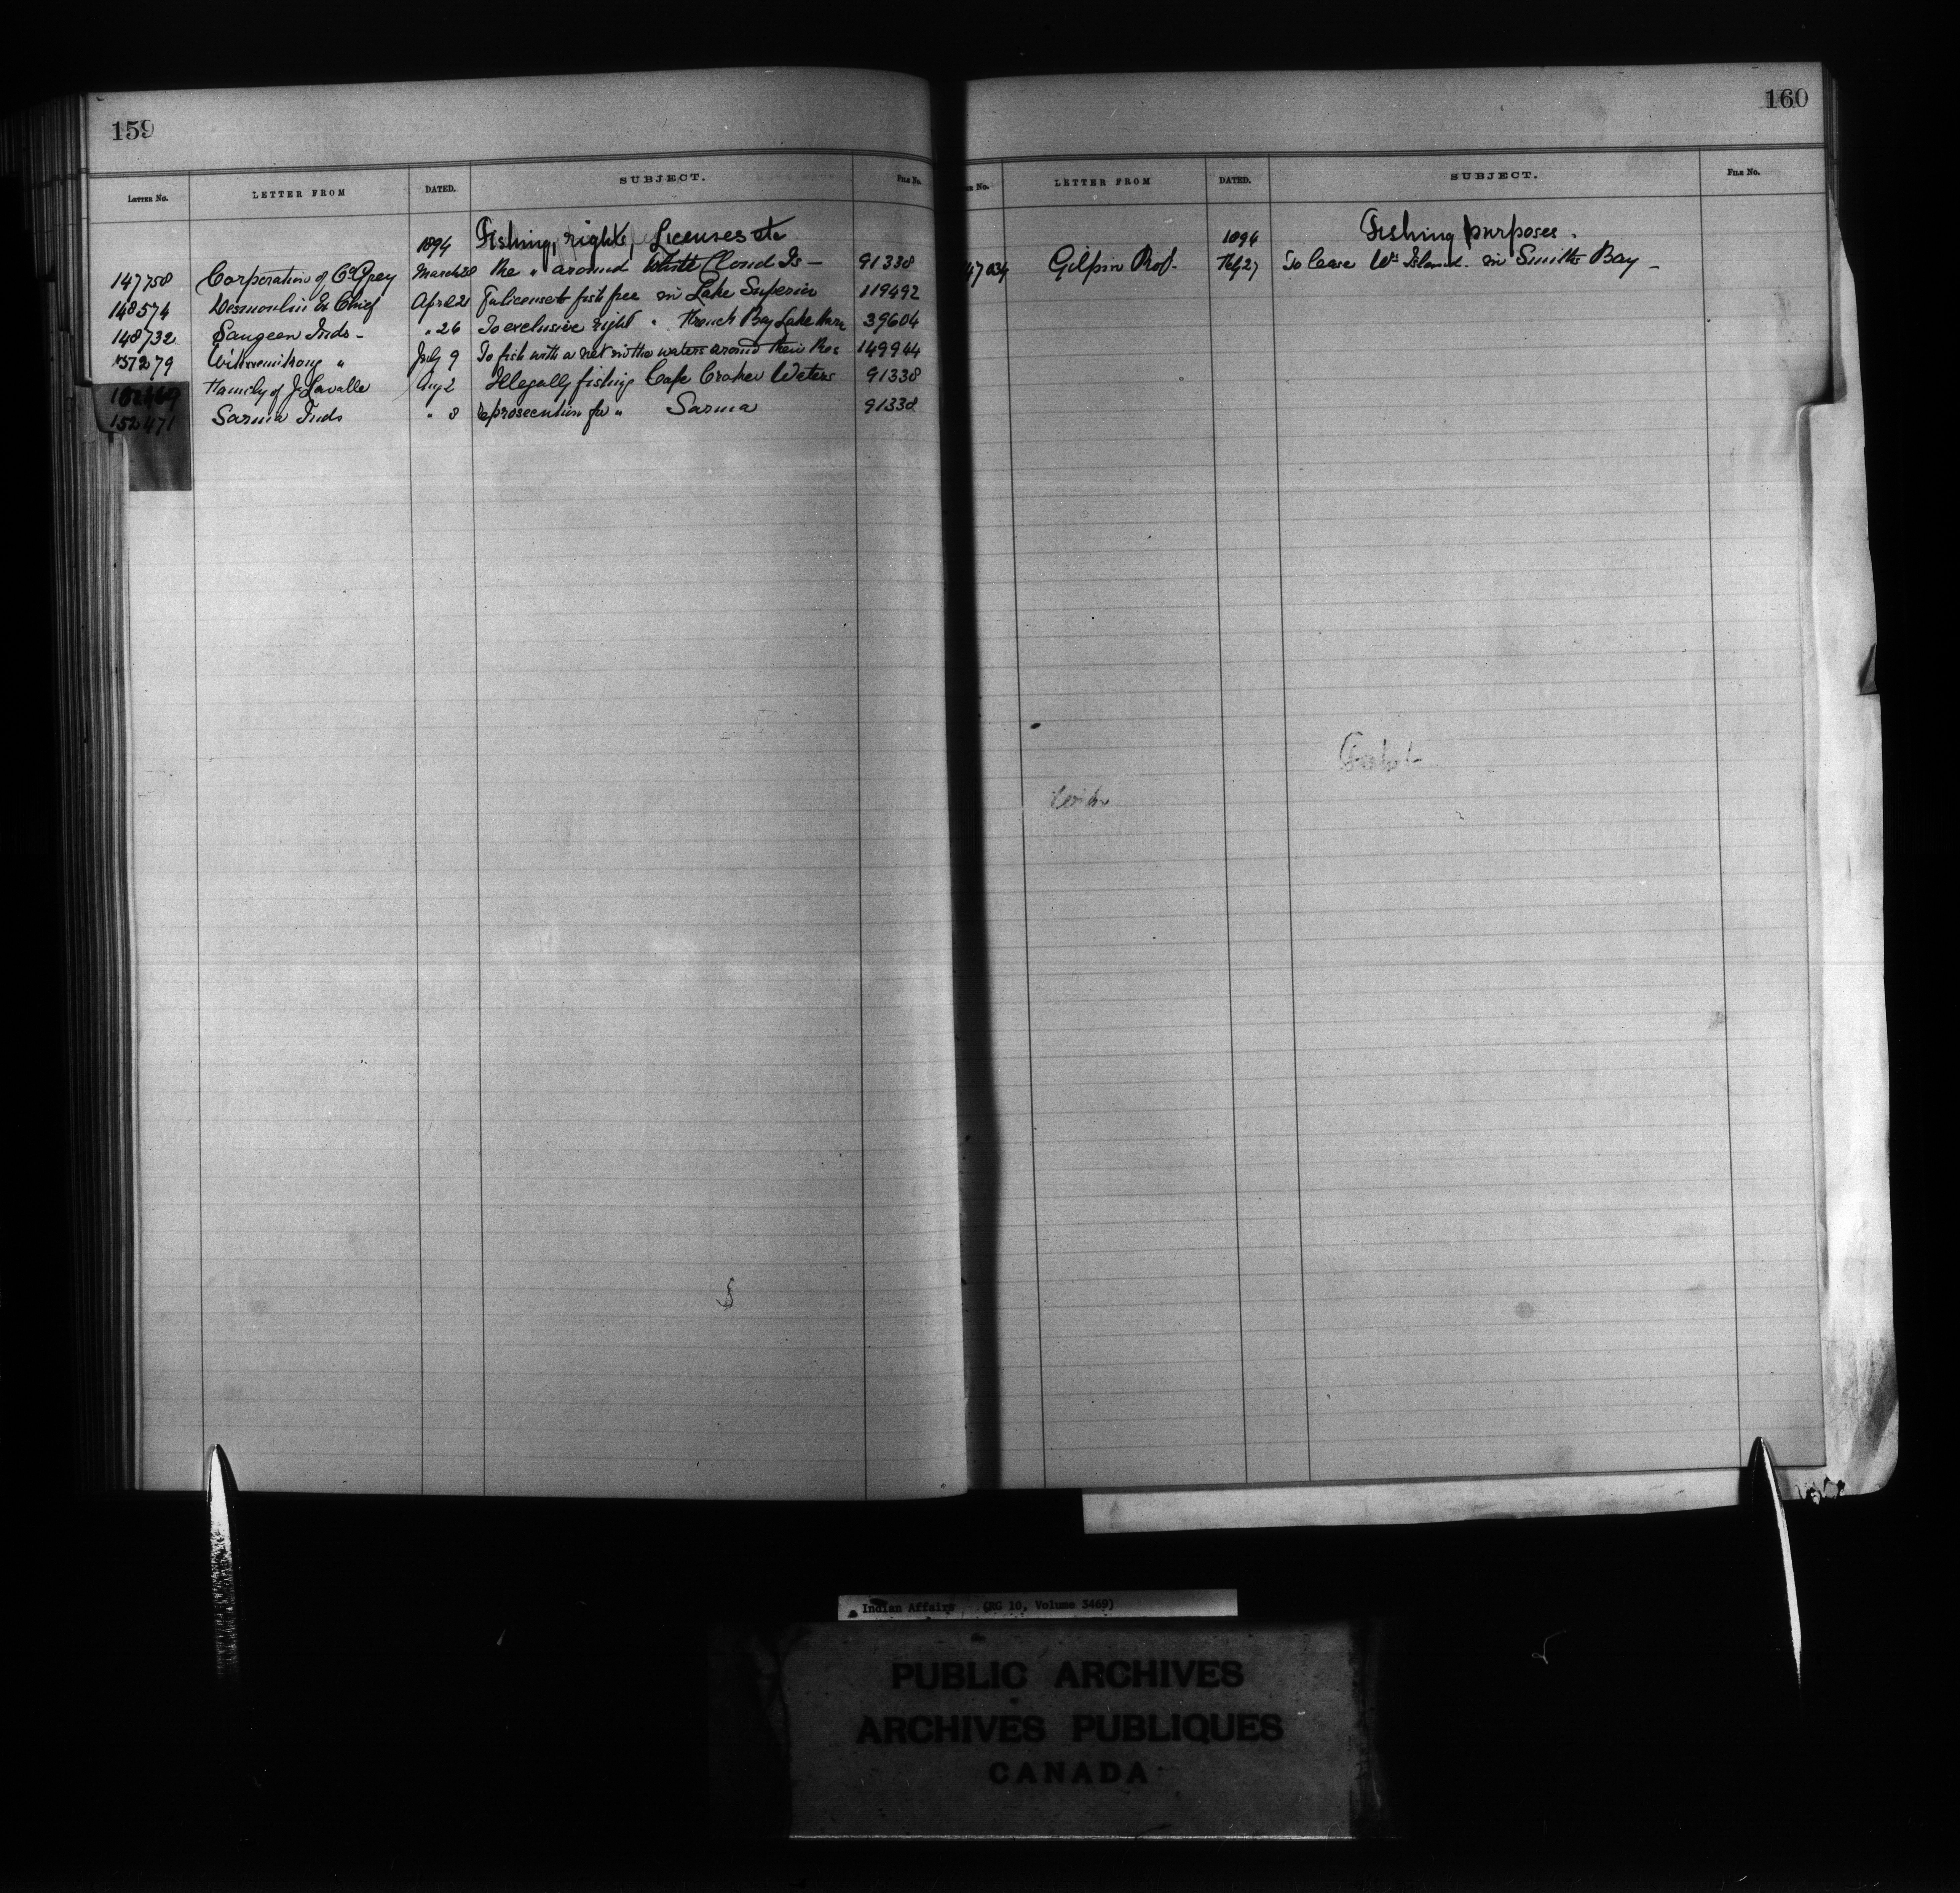 159
LETTER No. LETTER FROM DATED. SUBJECT. FILE No.
1894 Fishing, rights, Licenses etc
147758 Corporation of Co Grey March 28 Re " around White Cloud Is — 91338
148574 Desmoulin Ex Chief April 21 For license to fish free in Lake Superior 119492
148732 Saugeen Inds — " 26 To exclusive right " French Bay Lake Huron 39604
July 9 To fish with a net in the waters around their Res 149944
Family of J. Lavalle Aug 2 Illegally fishing Cape Croker Waters 91338
152471 Sarnia Inds " 8 prosecution for " Sarnia 91338
160
No. LETTER FROM DATED. SUBJECT. FILE No.
1894 Fishing purposes.
47034 Gilpin Robt. Feby 27 To lease Island in Smiths Bay —
Indian Affairs (RG 10, Volume 3469)
PUBLIC ARCHIVES
ARCHIVES PUBLIQUES
CANADA